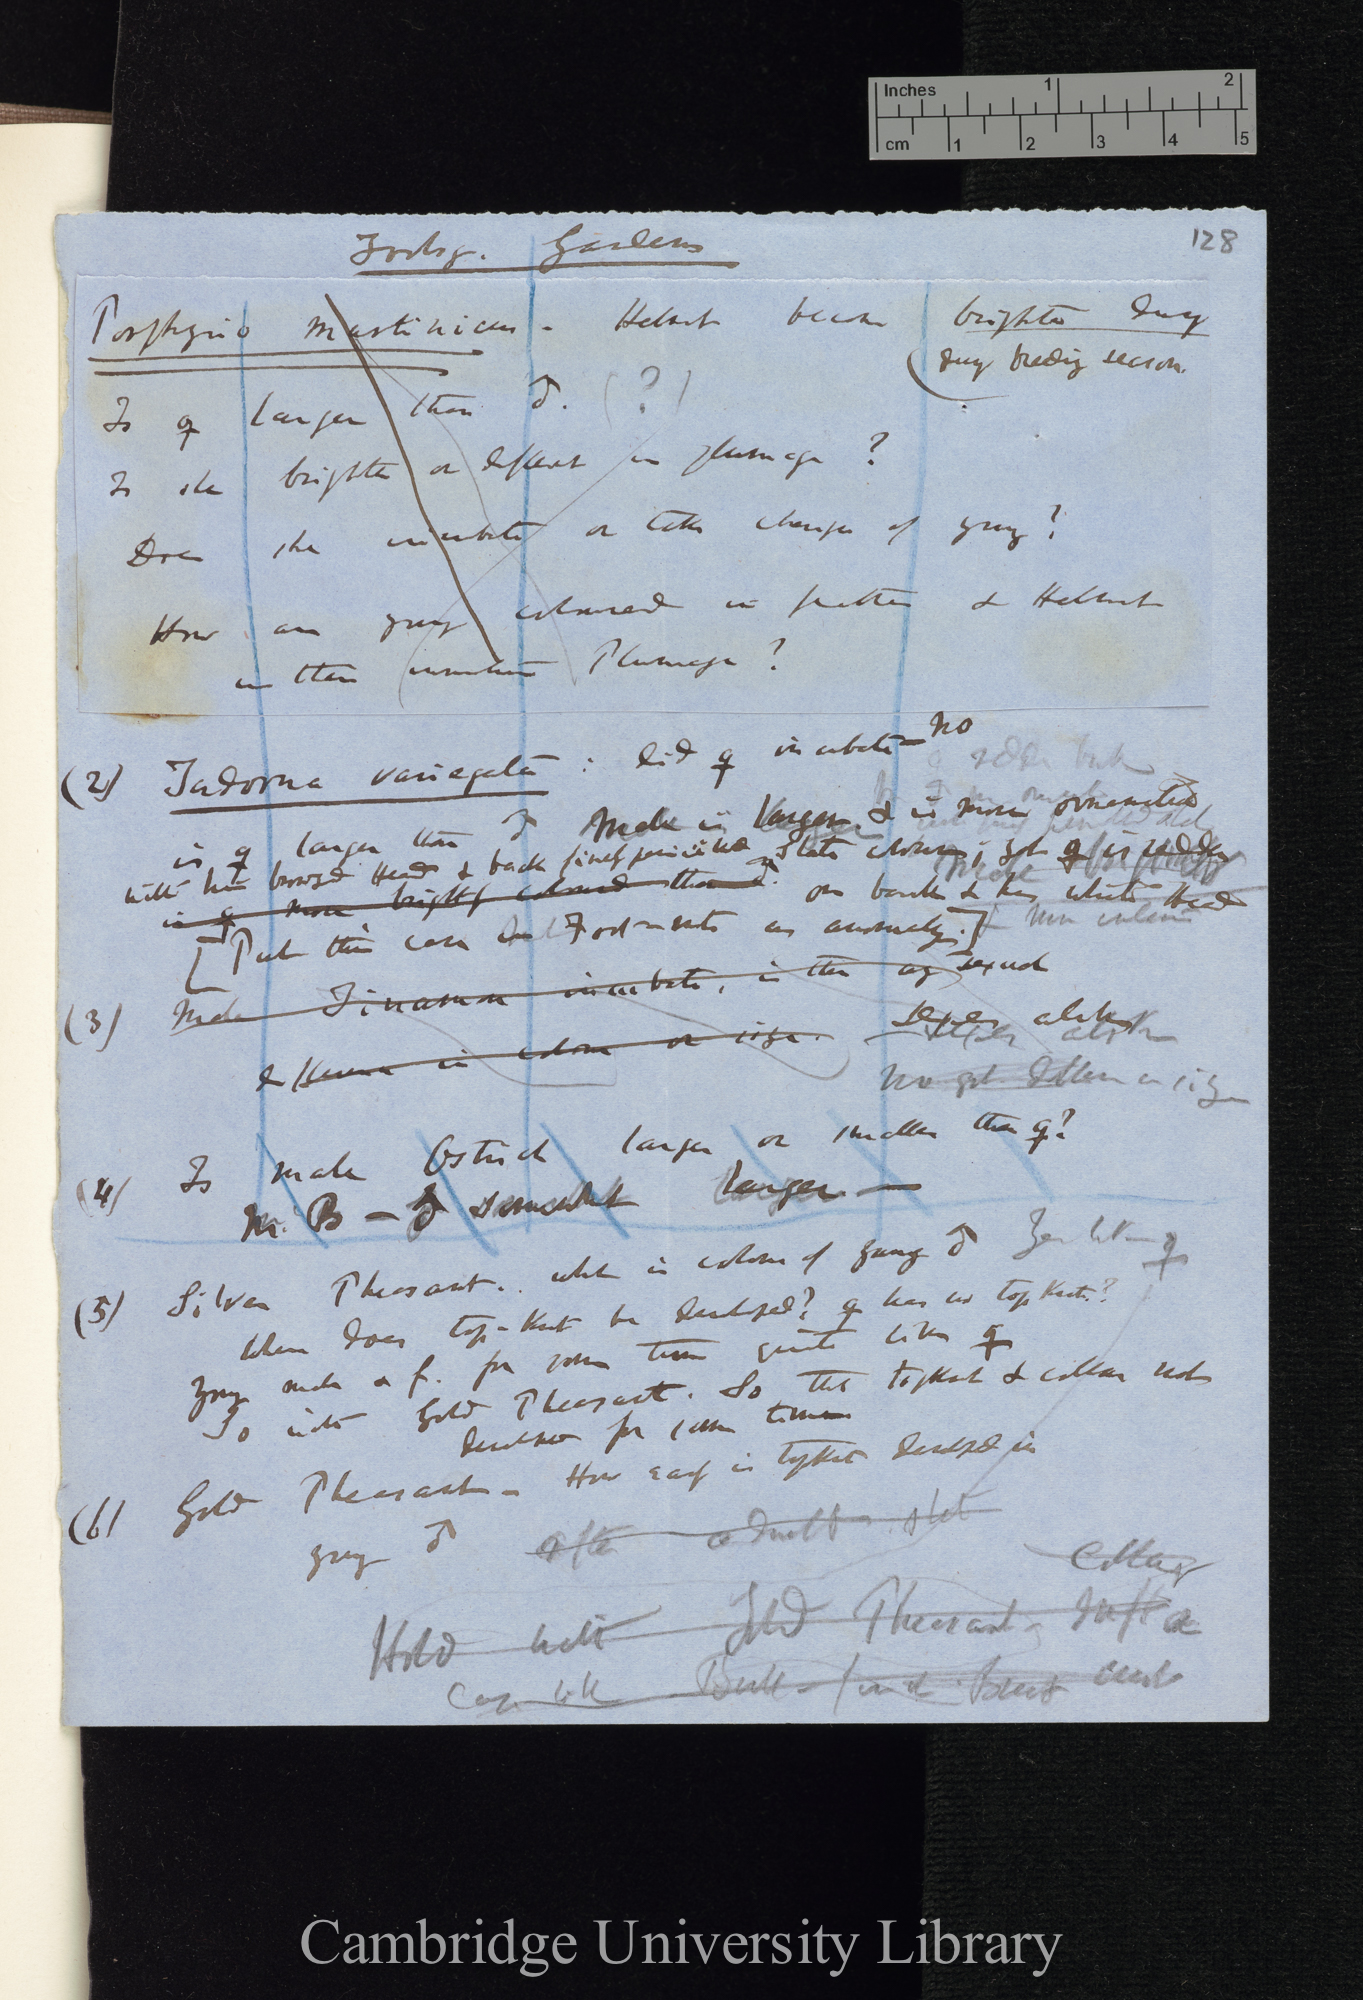 Inches 1 2
cm 1 2 3 4 5
128
Zoolog. Gardens
Porphyrio martinicus - Helmet become brighter
during breeding season.
Is ♀ larger than ♂. (?)
Is she brighter or different in plumage?
Does she incubate or take charge of young?
How are young coloured in feather & Helmet
in their immature Plumage?
(2) Tadorna variegata: did ♀ incubate — No
is ♀ larger than ♂ Male is larger & is more ornamented
with his bronzed Head & back finely pencilled slate colour; yet ♀ is redder
is ♀ more brightly coloured than ♂. on back & has white Head
[Put this case in Foot-note as anomaly.]
(3) Male Tinamou incubate, is there any sexual
difference in colour or size. Sexes alike
sexes alike
No gt. difference in size
(4) Is male Ostrich larger or smaller than ♀?
Mr. B — ♂ somewhat larger —
(5) Silver Pheasant. what is colour of young ♂ like ♀
When does top-knot be developed? ♀ has no top knot?
young male & f. for some time quite like ♀
So with Gold Pheasant. So that topknot & collar not
developed for some time
(6) Gold Pheasant - How early is topknot developed in
young ♂ after adult
collar
Gold Pheasant
Bull-finch Breast
Cambridge University Library